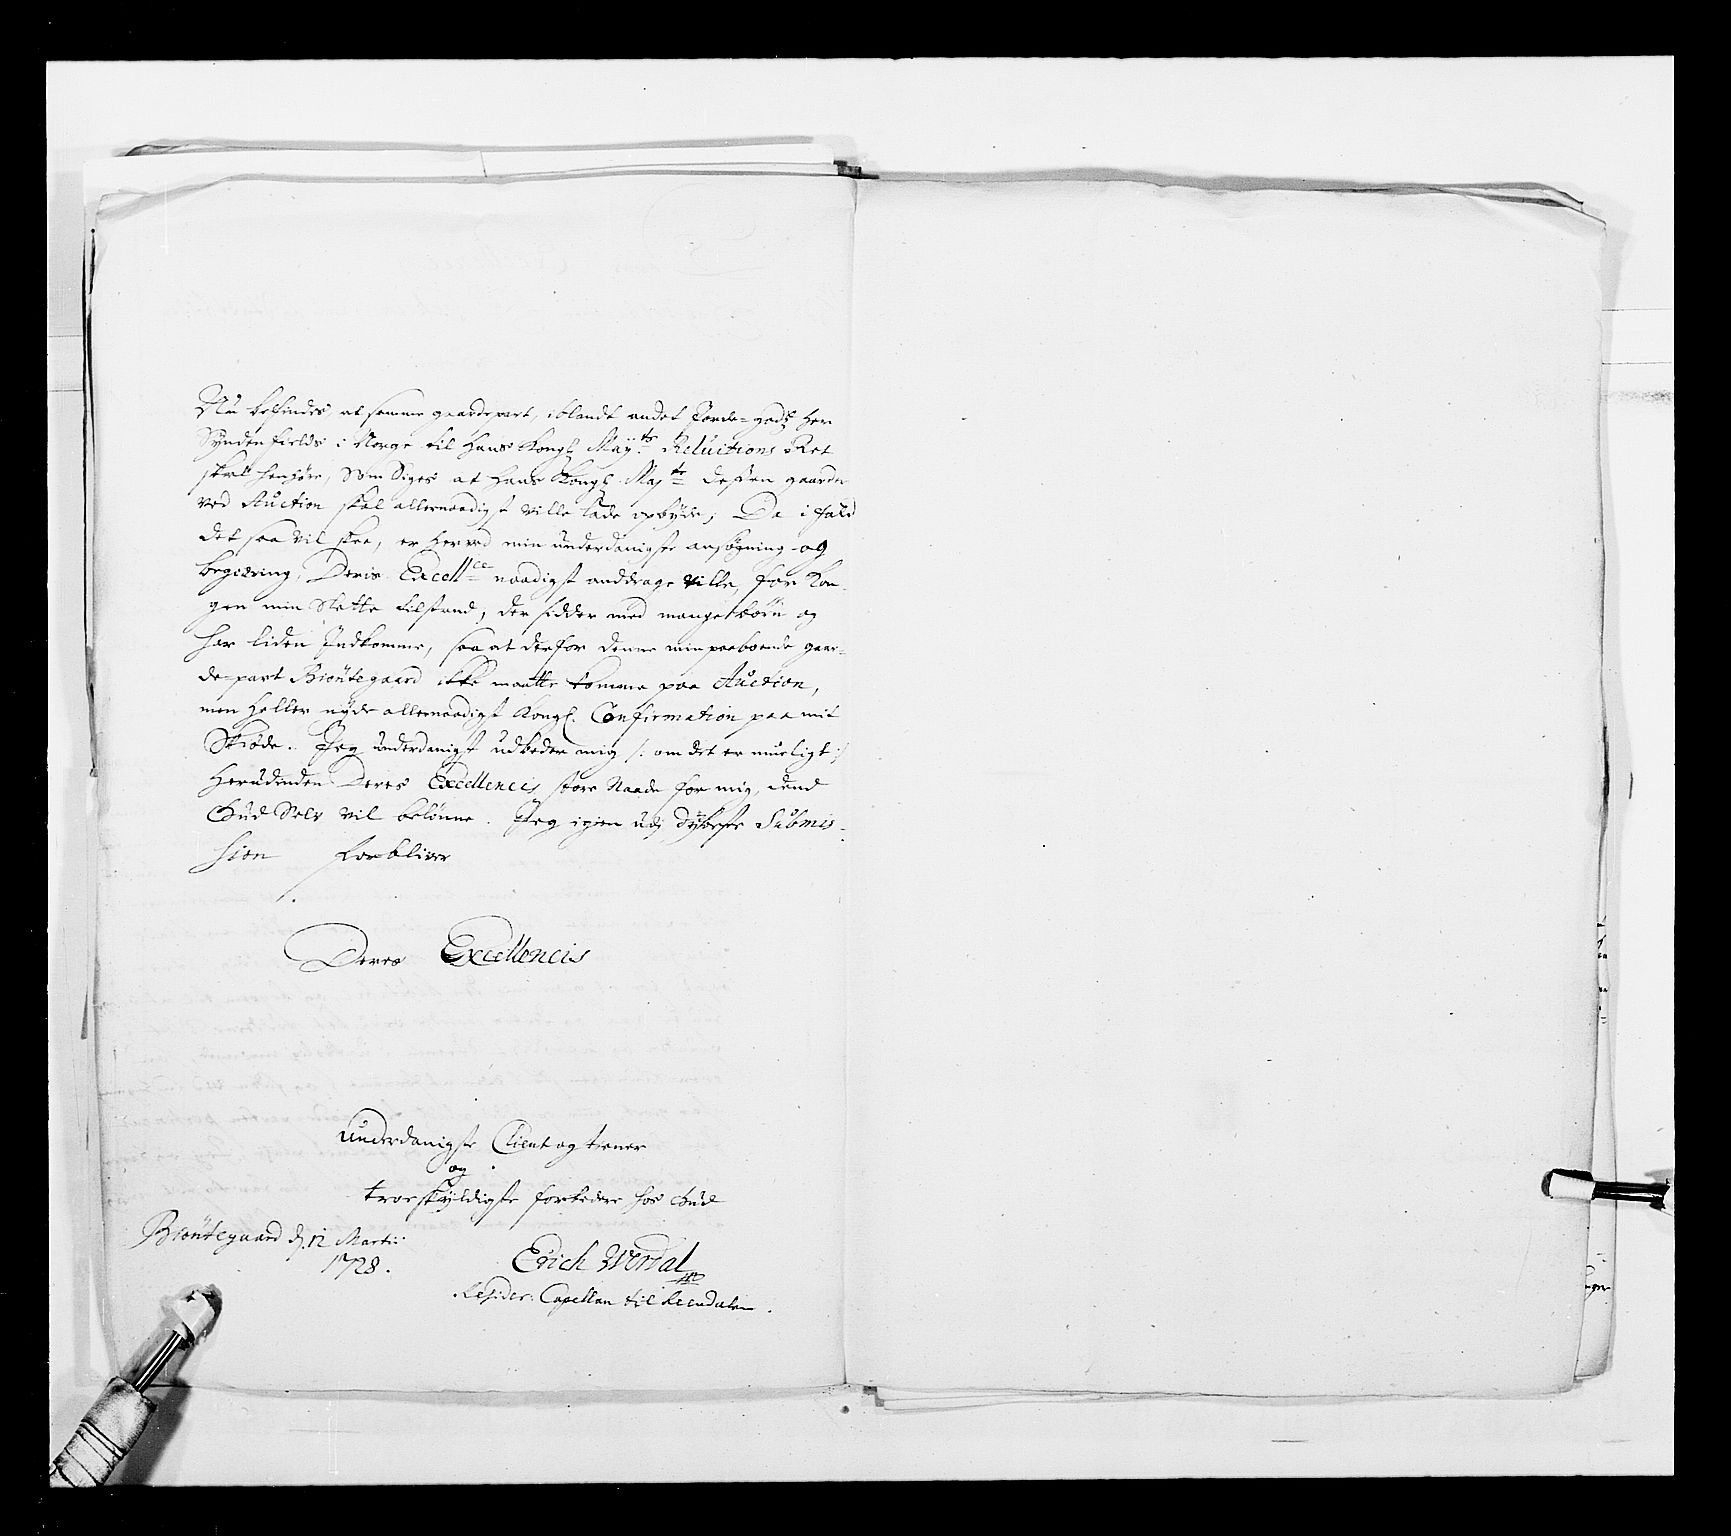 Nu befindes, at samme gaardepart, iblandt andet Jorde-godz her
Synden fields i Norge til Hans Kongl. Mayts. Reluitions Ret
skal henhøre, Som Siges at Hans Kongl. Majts dessen gaarder
ved Auction skal allernaadigst ville lade opbyde; Da i fald
det saa vil skee, er herved min underdanigste ansøgning og
begiæring, Deris Excellce naadigst anddrage ville, for Kon-
gen min Slette tilstand, der sidder med mange børn og
har liden Indkomme, saa at derfor denne min paaboende gaar-
de-part Biøntegaard ikke maatte komme paa Auction,
men heller nyde allernaadigst Kongl. Confirmation paa mit
Skiøde. Jeg underdanigst udbeder mig /: om det er mueligt :/
herudinden Deres Excellencis store Naade for mig, dend
Gud Selv vil belønne. Jeg igien udj dybeste Submis-
sion forbliver
Deres Excellencis
underdanigste Client og tiener
og
troeskyldigste forbedere hos Gud
Biøntegaard d. 12 Martii
1728.
Erich Werdal
Resider: Capellan til